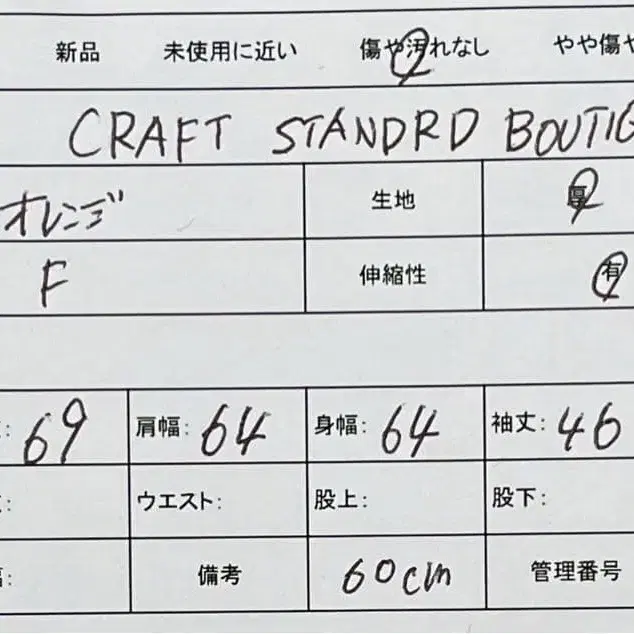 新品 未使用に近い 傷や汚れなし やや傷や
CRAFT STANDRD BOUTIQ
オレンジ 生地 厚
F 伸縮性 有
: 69 肩幅: 64 身幅: 64 袖丈: 46
: ウエスト: 股上: 股下:
: 備考 60cm 管理番号